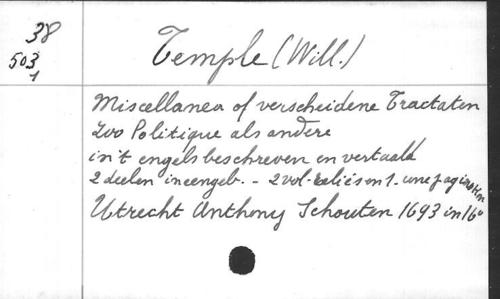 38
503
1
Temple (Will.)
Miscellanea of verscheidene Tractaten
Zoo Politique als andere
in't engels beschreven en vertaald
2 deelen ineengeb. - 2 vol. reliés en 1. une pagination
Utrecht Anthony Schouten 1693 in 16°